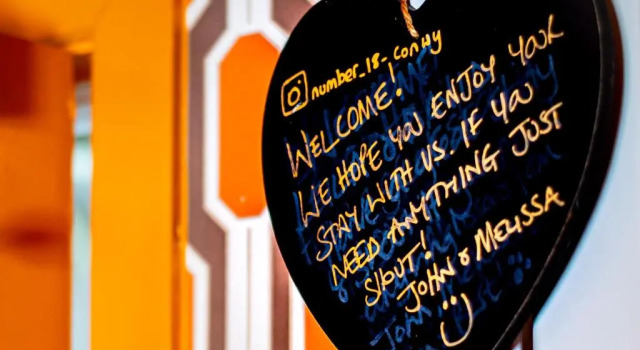 number_18_conwy
WELCOME!
WE HOPE YOU ENJOY YOUR
STAY WITH US. IF YOU
NEED ANYTHING JUST
SHOUT!
JOHN & MELISSA